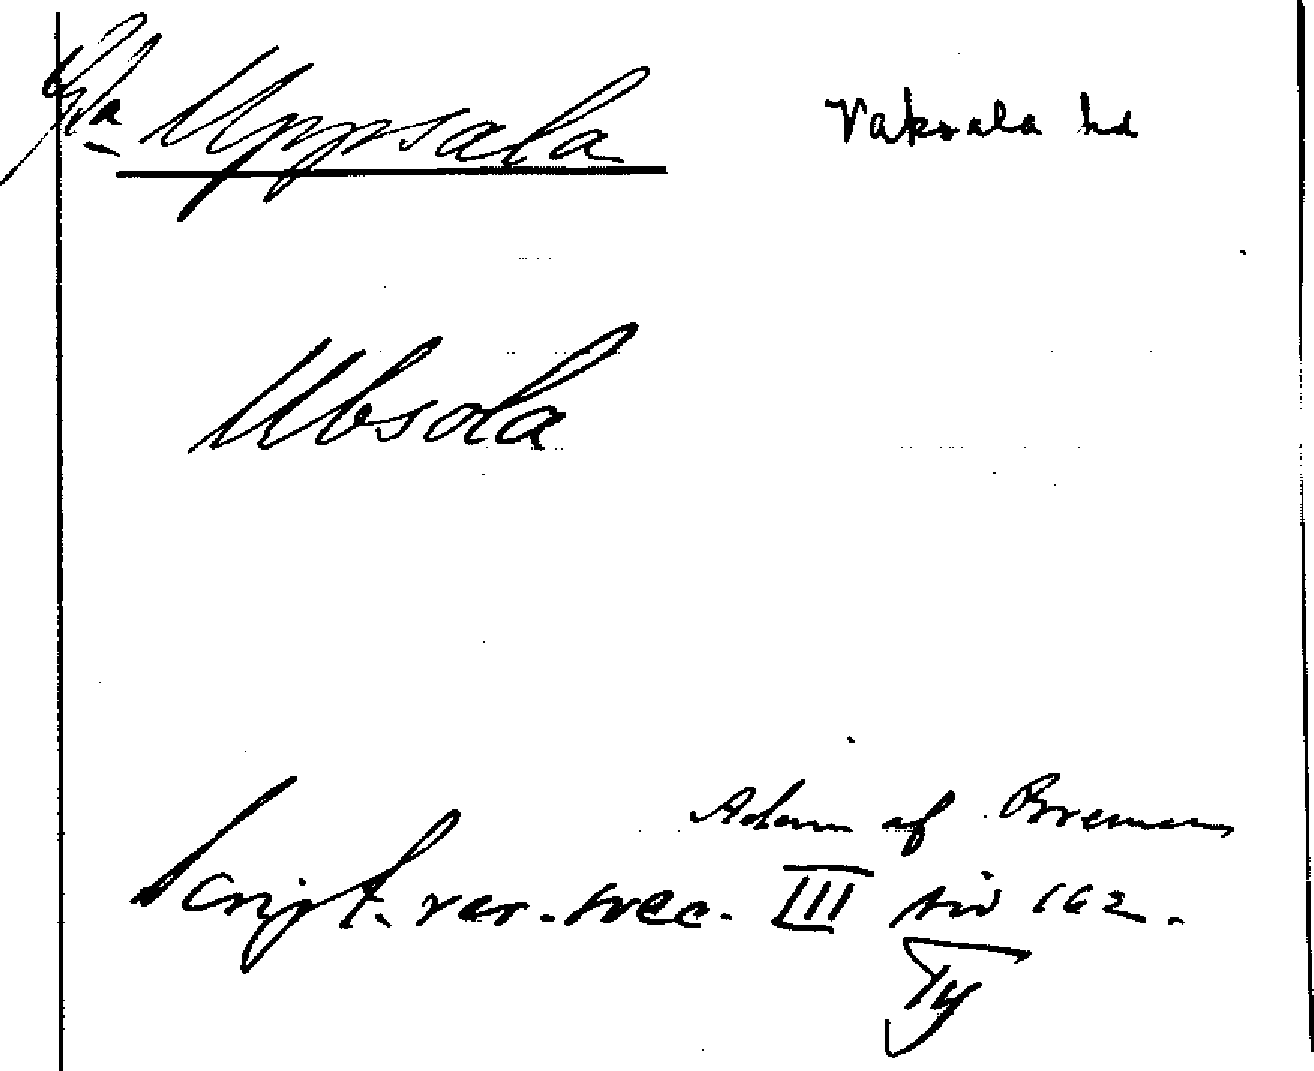 Gla Uppsala Vaksala hd
Ubsola
Adam af Bremen
Script. rer. svec. III sid 162.
Ty